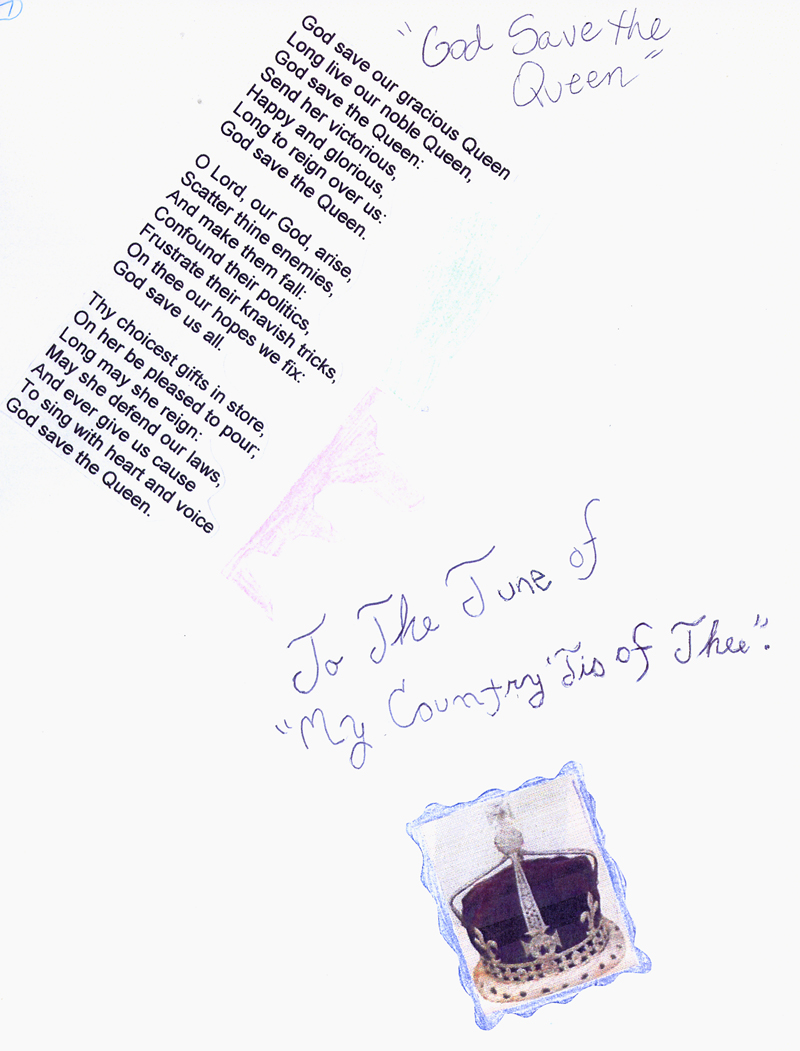 1
"God Save the
Queen"
God save our gracious Queen
Long live our noble Queen,
God save the Queen:
Send her victorious,
Happy and glorious,
Long to reign over us:
God save the Queen.
O Lord, our God, arise,
Scatter thine enemies,
And make them fall:
Confound their politics,
Frustrate their knavish tricks,
On thee our hopes we fix:
God save us all.
Thy choicest gifts in store,
On her be pleased to pour;
Long may she reign:
May she defend our laws,
And ever give us cause
To sing with heart and voice
God save the Queen.
To The Tune of
"My Country 'Tis of Thee".